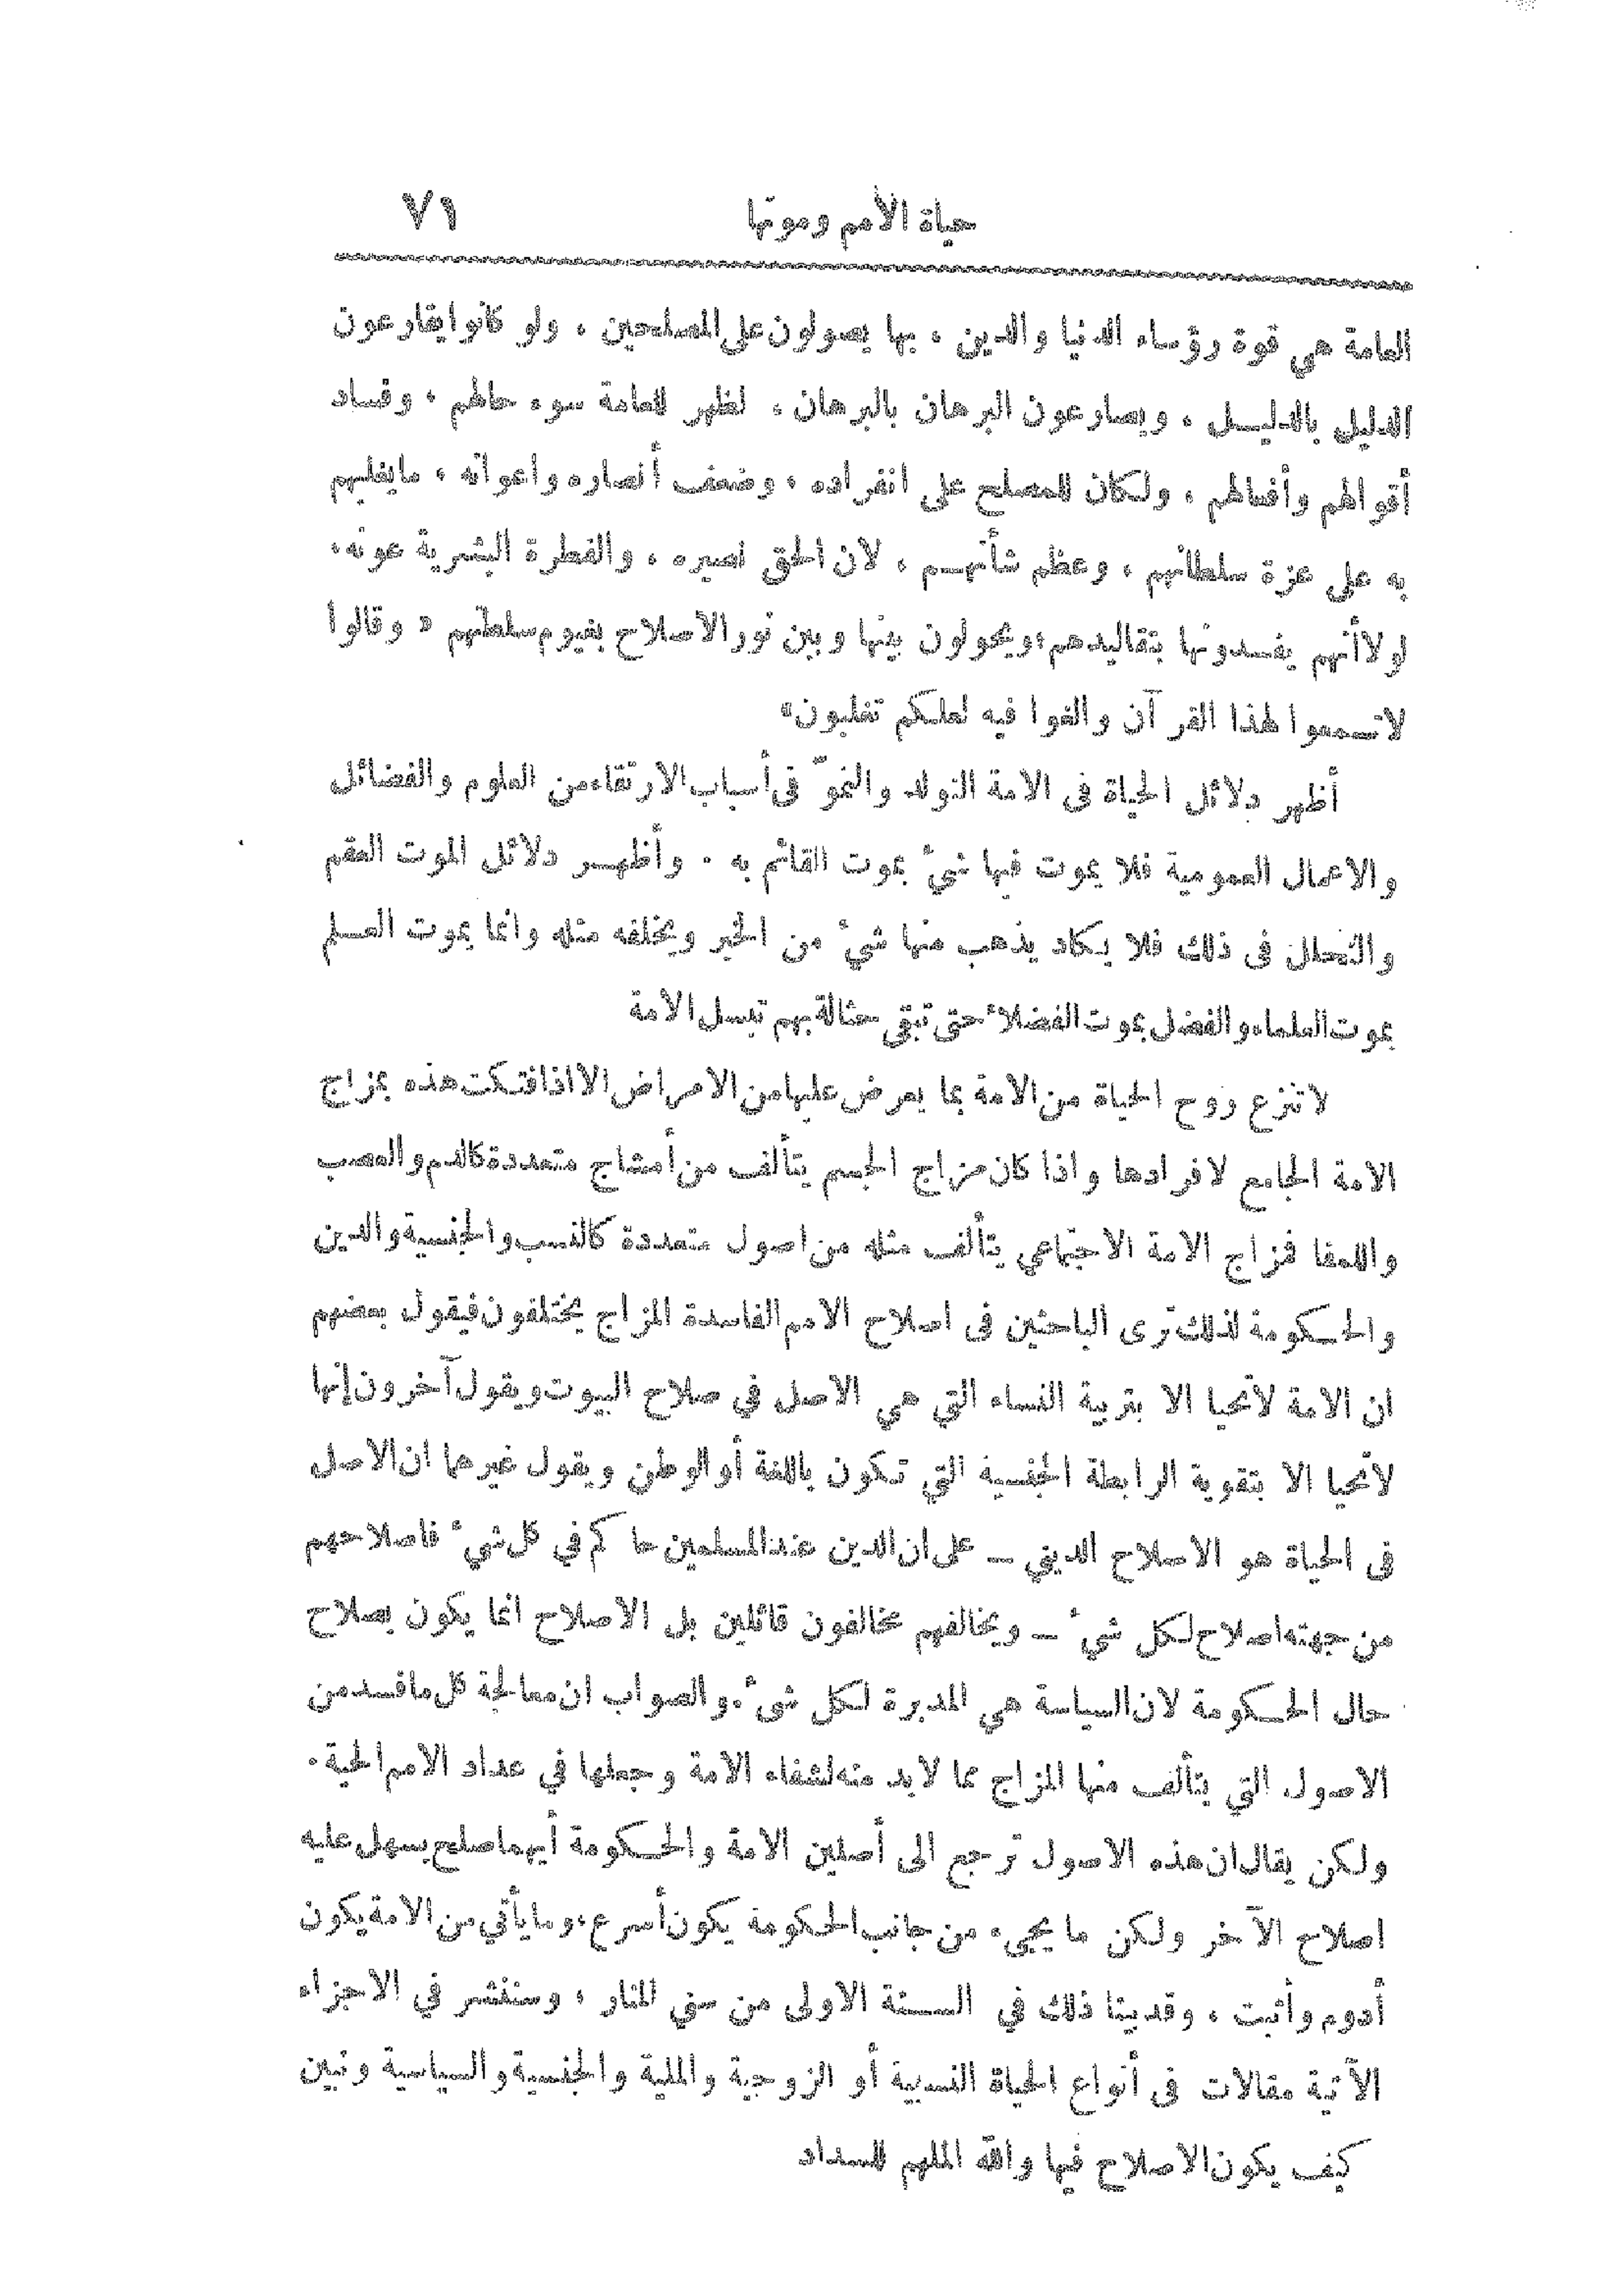 حياة الأمم وموتها ٧١
العامة هي قوة رؤساء الدنيا والدين ، بها يصولون على المصلحين ، ولو كانوا يقارعون
الدليل بالدليـل ، ويصارعون البرهان بالبرهان ، لظهر للعامة سوء حالهم ، وفساد
أقوالهم وأفعالهم ، ولكان للمصلح على انفراده ، وضعف أنصاره واعوانه ، ما يغلبهم
به على عزة سلطانهم ، وعظم شأنهـم ، لان الحق نصيره ، والفطرة البشرية عونه ،
لولا أنهم يفسدونها بتقاليدهم ، ويحولون بينها وبين نور الاصلاح بغيوم سلطتهم « وقالوا
لا تسمعوا لهذا القرآن والغوا فيه لعلكم تغلبون »
أظهر دلائل الحياة فى الامة التولد والنموّ فى أسباب الارتقاء من العلوم والفضائل
والاعمال العمومية فلا يموت فيها شيء بموت القائم به . وأظهـر دلائل الموت العقم
والتحلل فى ذلك فلا يكاد يذهب منها شيء من الخير ويخلفه مثله وانما يموت العـلم
بموت العلماء والفضل بموت الفضلاء حتى تبقى حثالة بهم تبسل الامة
لا تنزع روح الحياة من الامة بما يعرض عليها من الامراض الا اذا فتكت هذه بمزاج
الامة الجامع لافرادها واذا كان مزاج الجسم يتألف من أمشاج متعددة كالدم والعصب
واللمفا فمزاج الامة الاجتماعي يتألف مثله من اصول متعددة كالنسب والجنسية والدين
والحـكومة لذلك ترى الباحثين فى اصلاح الامم الفاسدة المزاج يختلفون فيقول بعضهم
ان الامة لا تحيا الا بتربية النساء التي هي الاصل في صلاح البيوت ويقول آخرون إنها
لا تحيا الا بتقوية الرابطة الجنسية التي تكون باللغة أو الوطن ويقول غيرهما ان الاصل
فى الحياة هو الاصلاح الديني ــ على ان الدين عند المسلمين حاكم في كل شيء فاصلاحهم
من جهته اصلاح لكل شيء ــ ويخالفهم مخالفون قائلين بل الاصلاح انما يكون بصلاح
حال الحـكومة لان السياسة هي المدبرة لكل شىء . والصواب ان معالجة كل ما فسد من
الاصول التي يتألف منها المزاج مما لا بد منه لشفاء الامة وجعلها في عداد الامم الحية .
ولكن يقال ان هذه الاصول ترجع الى أصلين الامة والحـكومة أيهما صلح يسهل عليه
اصلاح الآخر ولكن ما يجىء من جانب الحكومة يكون أسرع ، وما يأتي من الامة يكون
أدوم وأثبت ، وقد بينا ذلك في السـنة الاولى من سني المنار ، وسننشر في الاجزاء
الآتية مقالات فى أنواع الحياة النسبية أو الزوجية والملية والجنسية والسياسية ونبين
كيف يكون الاصلاح فيها والله الملهم للسداد